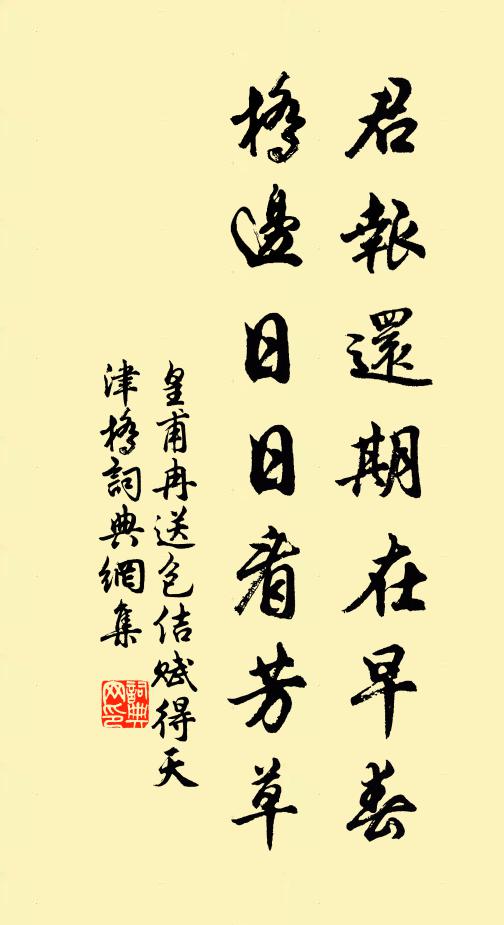 君報還期在早春
橋邊日日看芳草
皇甫冉送包佶賦得天
津橋詞典網集
詞典网印